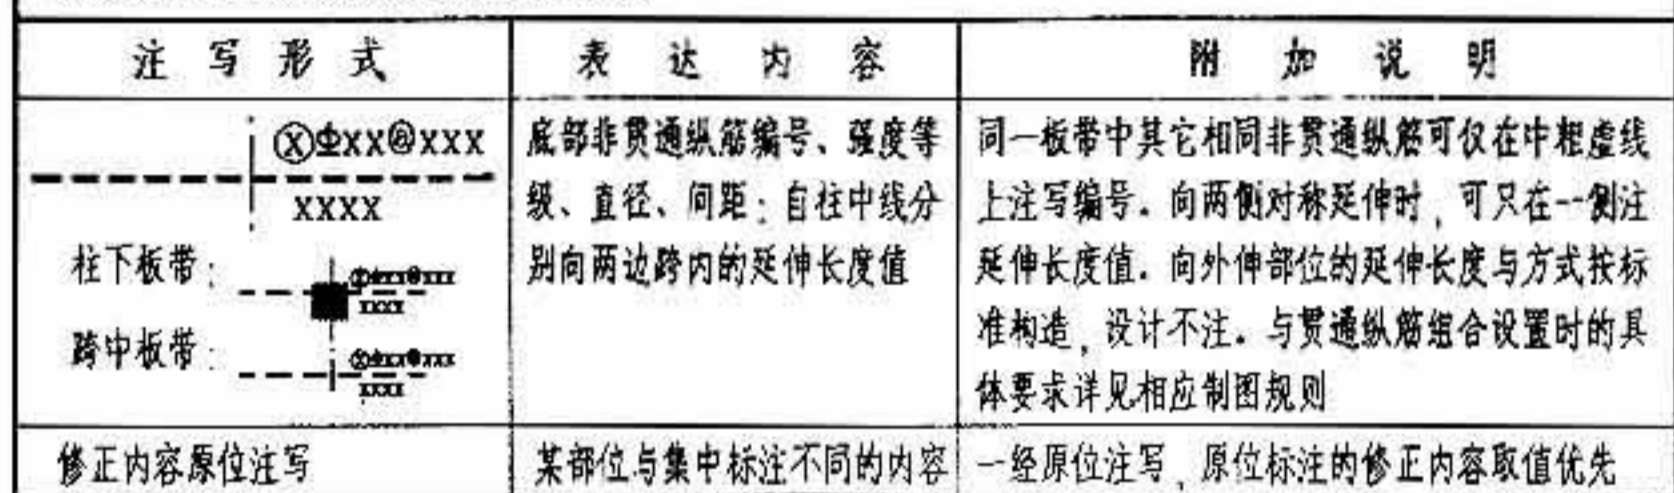 注写形式
表达内容
附加说明
ⓍΦXX@XXX
XXXX
柱下板带：
ⓍΦXX@XXX
XXXX
跨中板带：
ⓍΦXX@XXX
XXXX
底部非贯通纵筋编号、强度等
级、直径、间距；自柱中线分
别向两边跨内的延伸长度值
同一板带中其它相同非贯通纵筋可仅在中粗虚线
上注写编号。向两侧对称延伸时，可只在一侧注
延伸长度值。向外伸部位的延伸长度与方式按标
准构造，设计不注。与贯通纵筋组合设置时的具
体要求详见相应制图规则
修正内容原位注写
某部位与集中标注不同的内容
一经原位注写，原位标注的修正内容取值优先